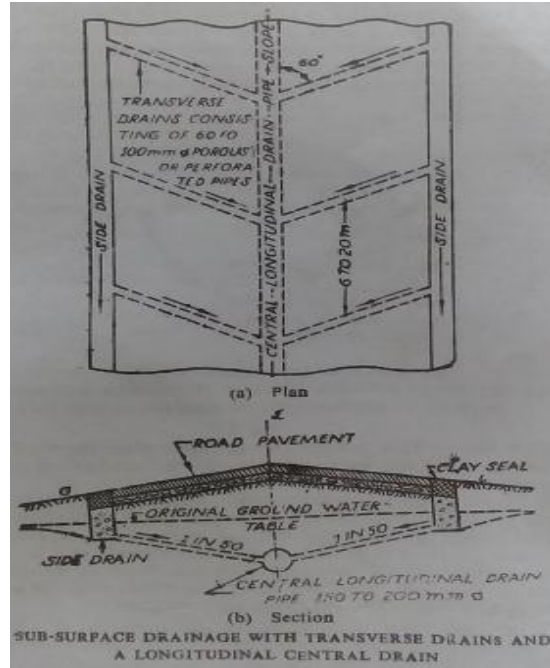 60°
TRANSVERSE
DRAINS CONSIS
TING OF 60 TO
100mm ø POROUS
OR PERFORA
TED PIPES
SIDE DRAIN
CENTRAL LONGITUDINAL DRAIN PIPE SLOPE
6 TO 20 m
SIDE DRAIN
(a) Plan
ROAD PAVEMENT
CLAY SEAL
G
L
ORIGINAL GROUND WATER
TABLE
1 IN 50
1 IN 50
SIDE DRAIN
CENTRAL LONGITUDINAL DRAIN
PIPE 150 TO 200 mm ø
(b) Section
SUB-SURPACE DRAINAGE WITH TRANSVERSE DRAINS AND
A LONGITUDINAL CENTRAL DRAIN